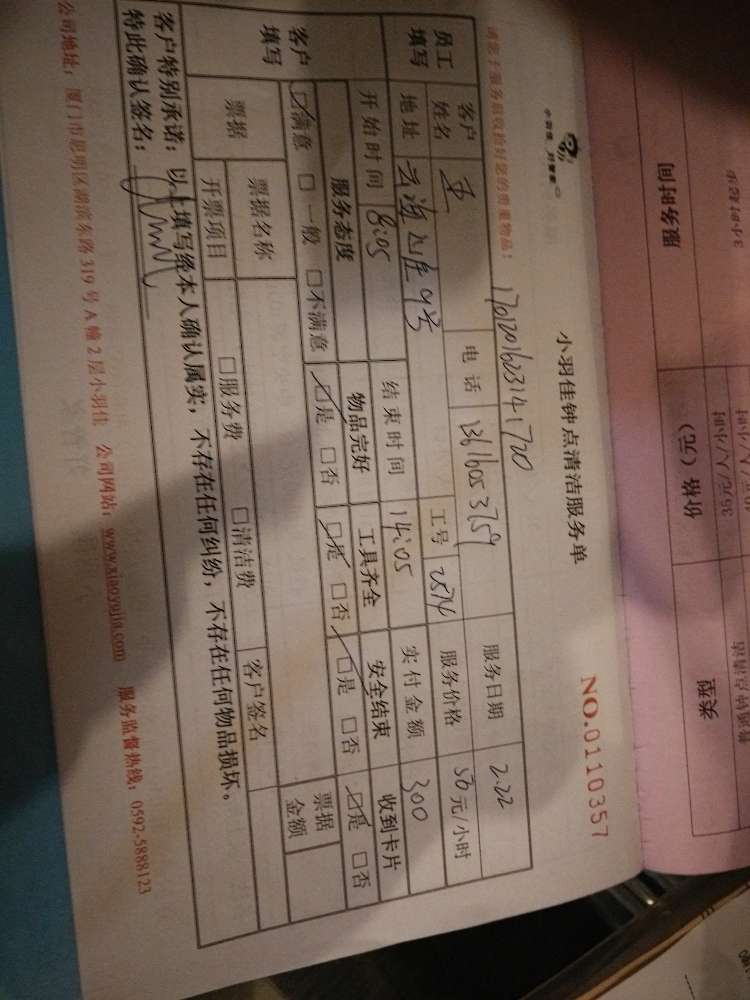 小羽佳钟点清洁服务单
NO.0110357
请您于服务前收拾好您的贵重物品:
1701201623141720
员工填写
客户姓名 王 电话 13616053759 服务日期 2.22
地址 云海山庄 工号 2574 服务价格 50元/小时
开始时间 8:05 结束时间 14:05 实付金额 300
客户填写
服务态度 物品完好 工具齐全 安全结束 收到卡片
☑满意 □一般 □不满意 ☑是 □否 ☑是 □否 ☑是 □否 ☑是 □否
票据 票据名称 票据金额
开票项目 □服务费 □清洁费 客户签名
客户特别承诺: 以上填写经本人确认属实,不存在任何纠纷,不存在任何物品损坏。
特此确认签名:
公司地址: 厦门市思明区湖滨东路319号A幢2层小羽佳 公司网站: www.xiaoyujia.com 服务监督热线: 0592-5888123
服务时间 价格(元) 类型
3小时起步 35元/人/小时 普通钟点清洁
元/人/小时